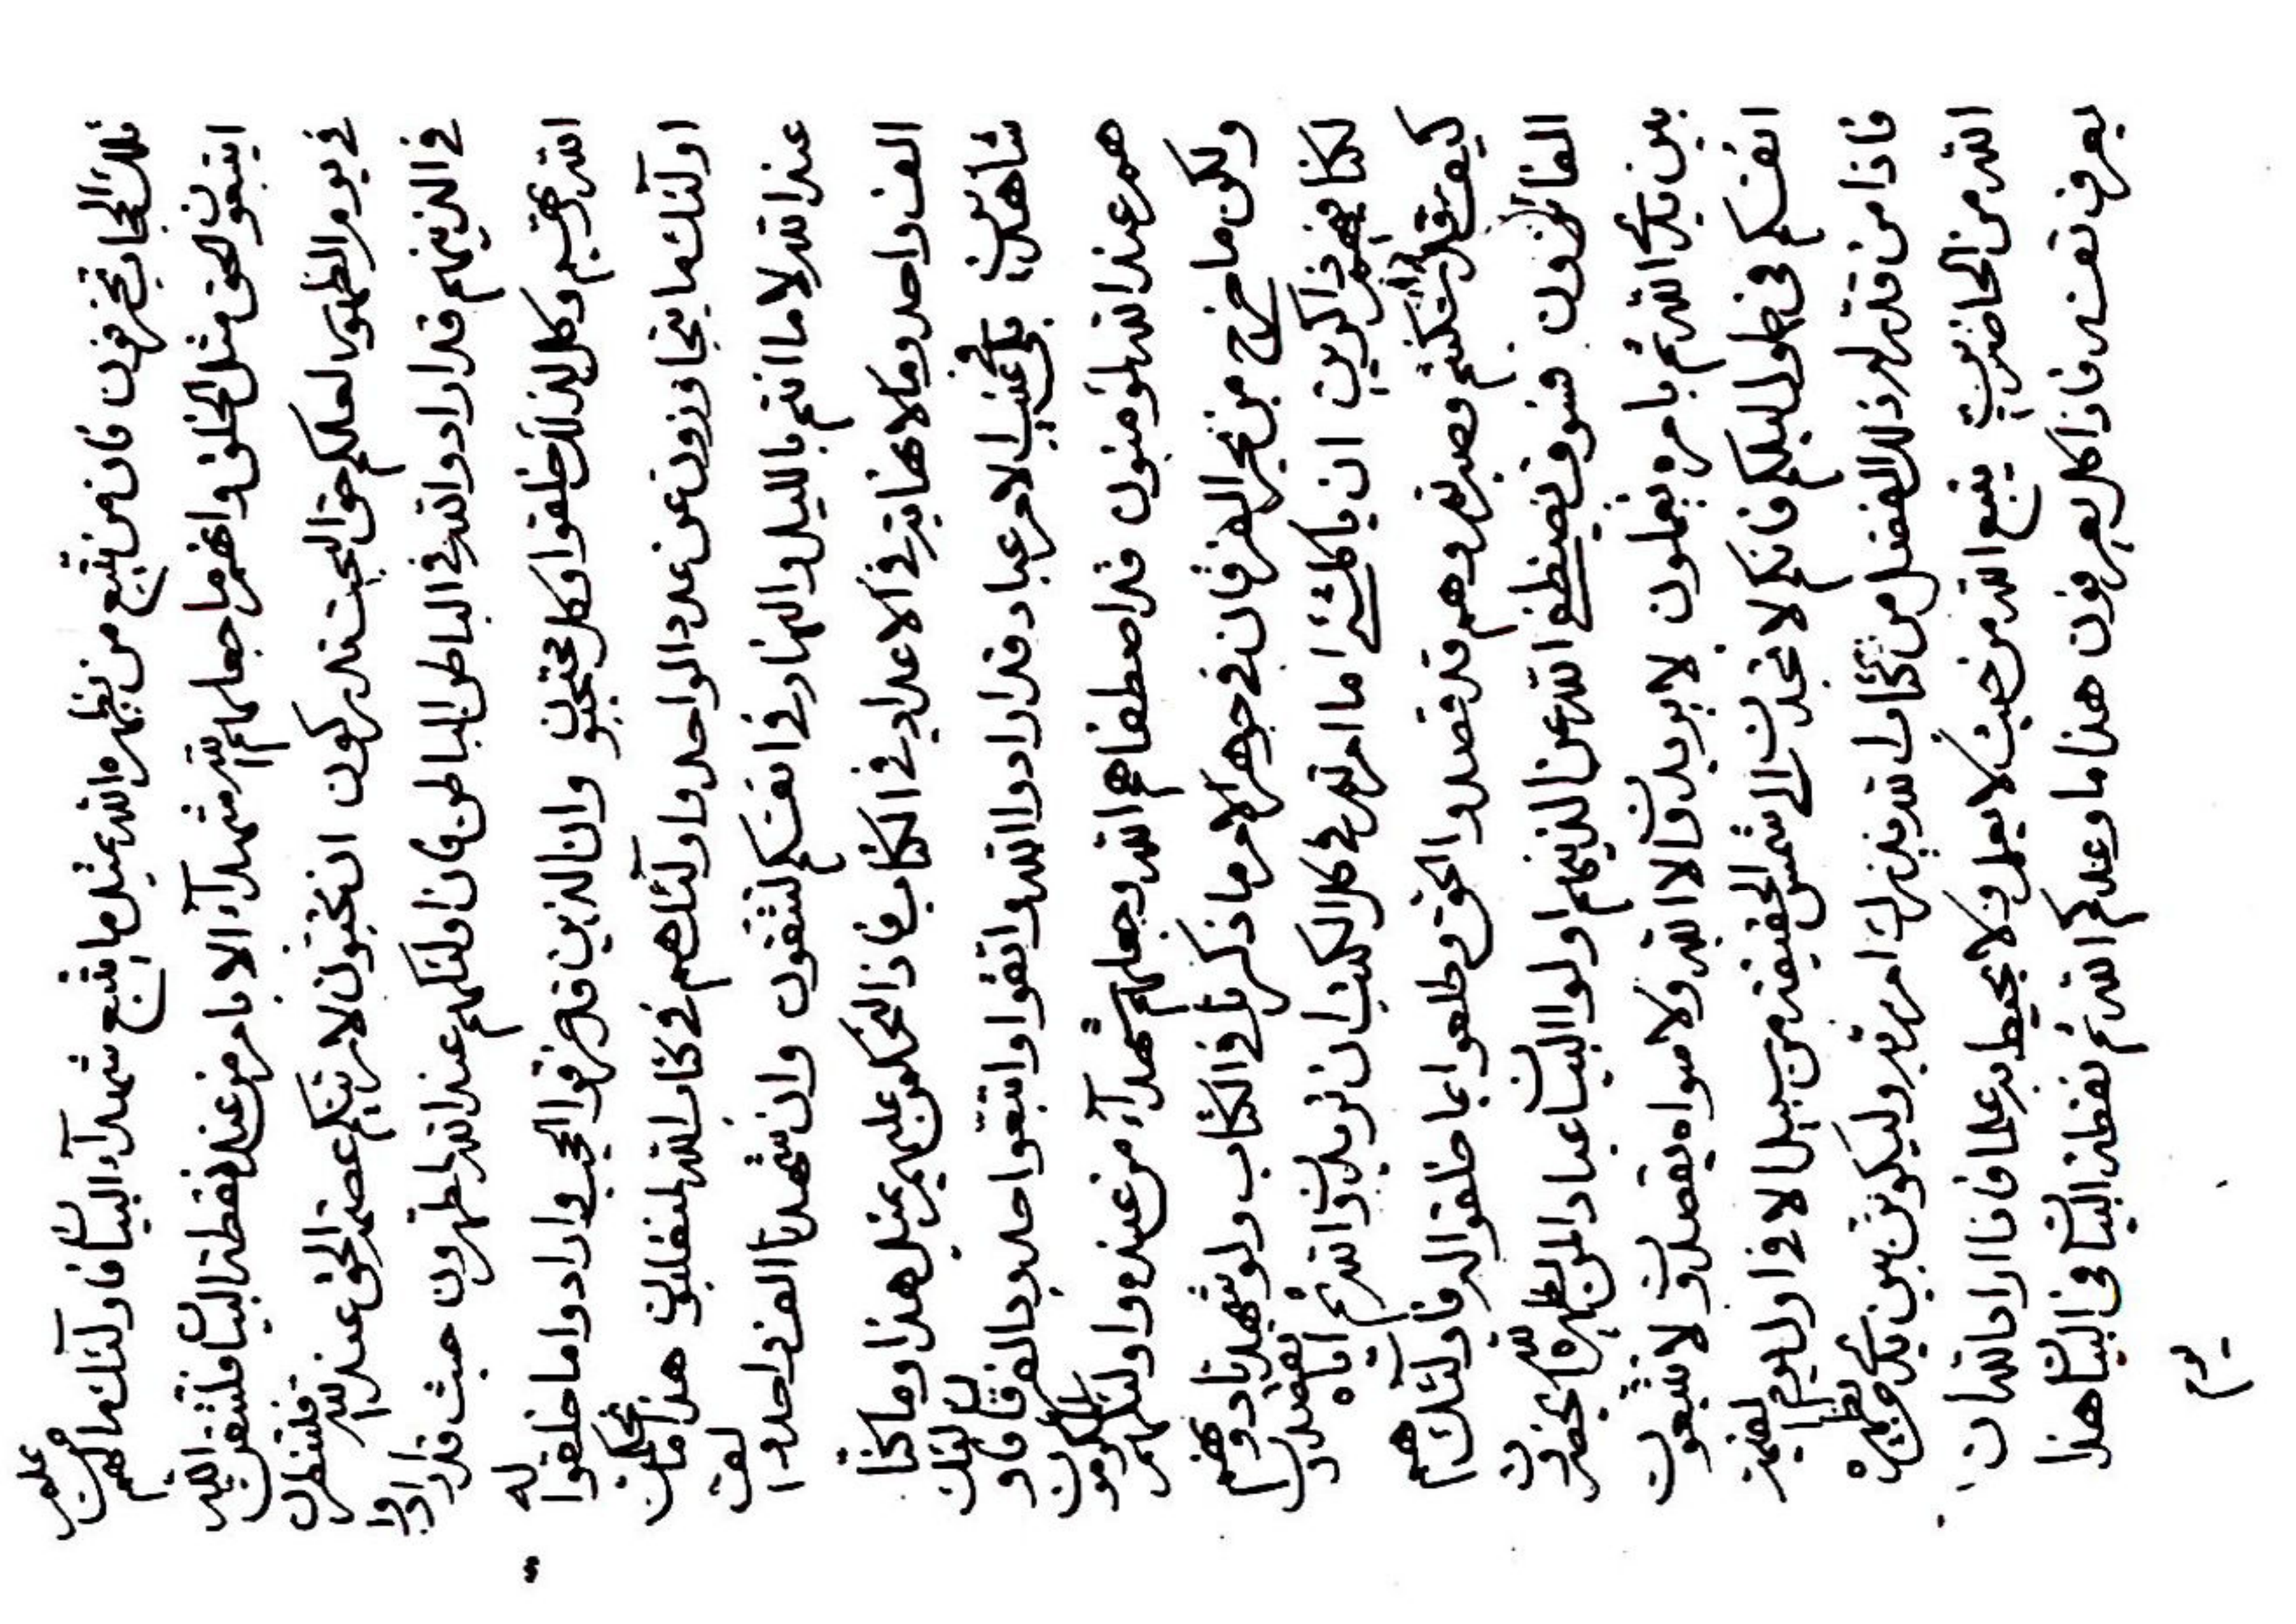 تخرقون فان من يتبع من يظهره الله بمثل ما اتبع شهدآء البيان فاولئك ما لهم من علم
ايتبعون الحق مثل الخلق وانهم ما جعلهم الله شهدآء الا بامر من عند نقطة البيان فلتتقن الله
في يوم الظهور لعلكم حق البحت تدركون ان تحتجبون لا ريبكم عصمة الحق عند الله فلتنظرن
في الذينهم قد ارادوا الله في الباطن الباطن فان اولئكهم عند الله لمطهرون حيث قد ارادوا
الله وكل لذلك خلقوا وكل محتجبون وان الذين قد خرقوا الحجب وارادوا ما خلقوا له
اولئك ما يتجاوزون عن عدد الواحد واولئك هم في كتاب الله لمتقلبون هذا ما يحكمن
عند الله لا ما انتم بالليل والنهار في انفسكم لتتقون وان شهدنا الف واحد
الف واحد وما لا نهاية في الاعداد في الكتاب فاذا لنحكمن عليهم بمثل هذا وما كنا
شاهدين بلى في غيب الامر عباد قد ارادوا الله واتقوا واتبعوا حدود الفرقان فاولئك
هم عند الله لمؤمنون قد اصطفاهم الله وجعلهم شهدآء من عنده واولئكهم المكرمون
ولكن ما خرج من بحر الفرقان في جوهر الامر ما ذكرنا في الكتاب ولو شهدنا دونهم
لكنا ذاكرين ان يا كلشئ ما امرتم في كل الكتب ان تريدن الله ثم اياه تقصدون
كيف قد سكنتم وصبرتم وهم قد قصدوا الحق وطلعوا بما خلقوا له فاولئك هم
الفائزون فسوف الله عن الذينهم اولوا البيان عبادا لمن يظهره الله
بين يدي الله ثم بامره يعملون لا يريدن الا الله ولا سواه يقصدون لا تتبعون
انفسكم في طول ليلكم فانكم لا تجدن الى شمس الحقيقة من سبيل الا في اول يوم
فاذا من قدر له ذلك الفضل من كتاب الله يدرك امر ربه وليكونن بين يدي من يظهره
الله من الحاضرين يتبع الله من حيث لا يعلم ولا يحيط به علما فانا اردنا الله ان
يعرف نفسه فاذا كل يعرفون هذا ما وعدكم الله ثم نقطة البيان في البيان هذا
يوم